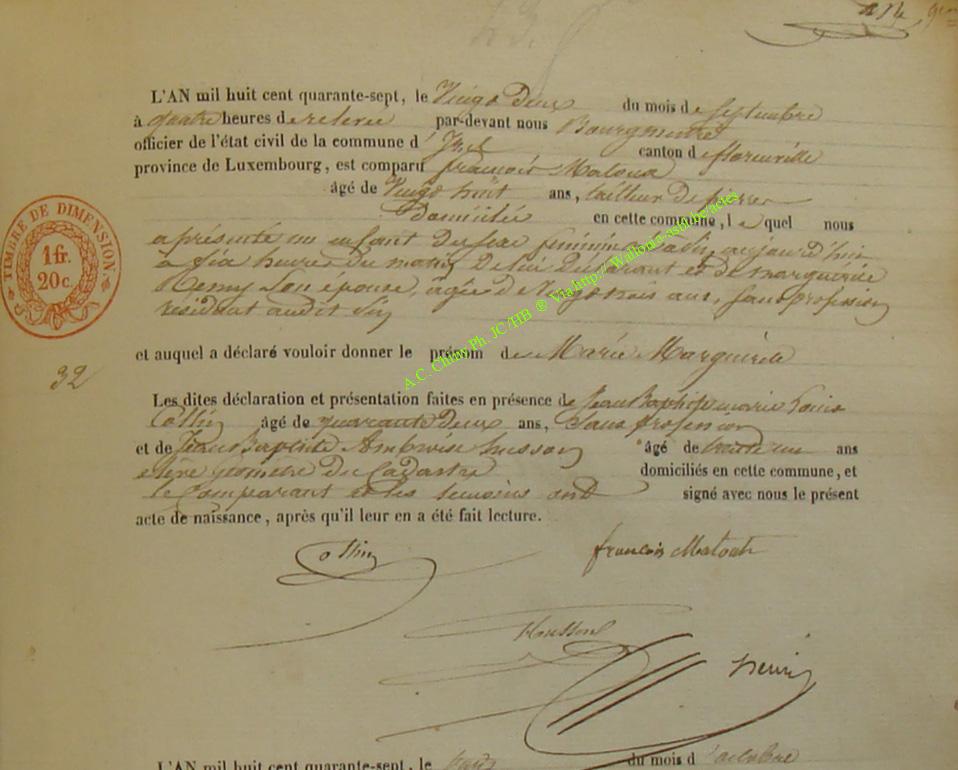 L'AN mil huit cent quarante-sept, le Vingt Deux du mois de Septembre
à quatre heures de relevée par-devant nous Bourgmestre
officier de l'état civil de la commune d' canton de florenville
province de Luxembourg, est comparu françois
âgé de Vingt huit ans, tailleur De pierres
Domicilié en cette commune, lequel nous
a présenté un enfant Du sexe féminin aujourd'hui
à six heures du matin De lui Déclarant et de marguerite
Remy Son épouse, agée de Vingt trois ans, Sans profession
résidant audit
et auquel a déclaré vouloir donner le prénom de Marie Marguerite
32
TIMBRE DE DIMENSION
1 fr.
20 c.
Les dites déclaration et présentation faites en présence de Jean Baptiste marie Louis
Collin âgé de quarante Deux ans, Sans profession
et de Jean Baptiste Ambroise husson âgé de trente un ans
géomètre Du Cadastre domiciliés en cette commune, et
le Comparant et les temoins ont signé avec nous le présent
acte de naissance, après qu'il leur en a été fait lecture.
Collin françois
husson
henri
L'AN mil huit cent quarante-sept, le du mois d'octobre
A.C. Chiny Ph. JC/HB ® Via http://Wallonie-asbl.be/actes